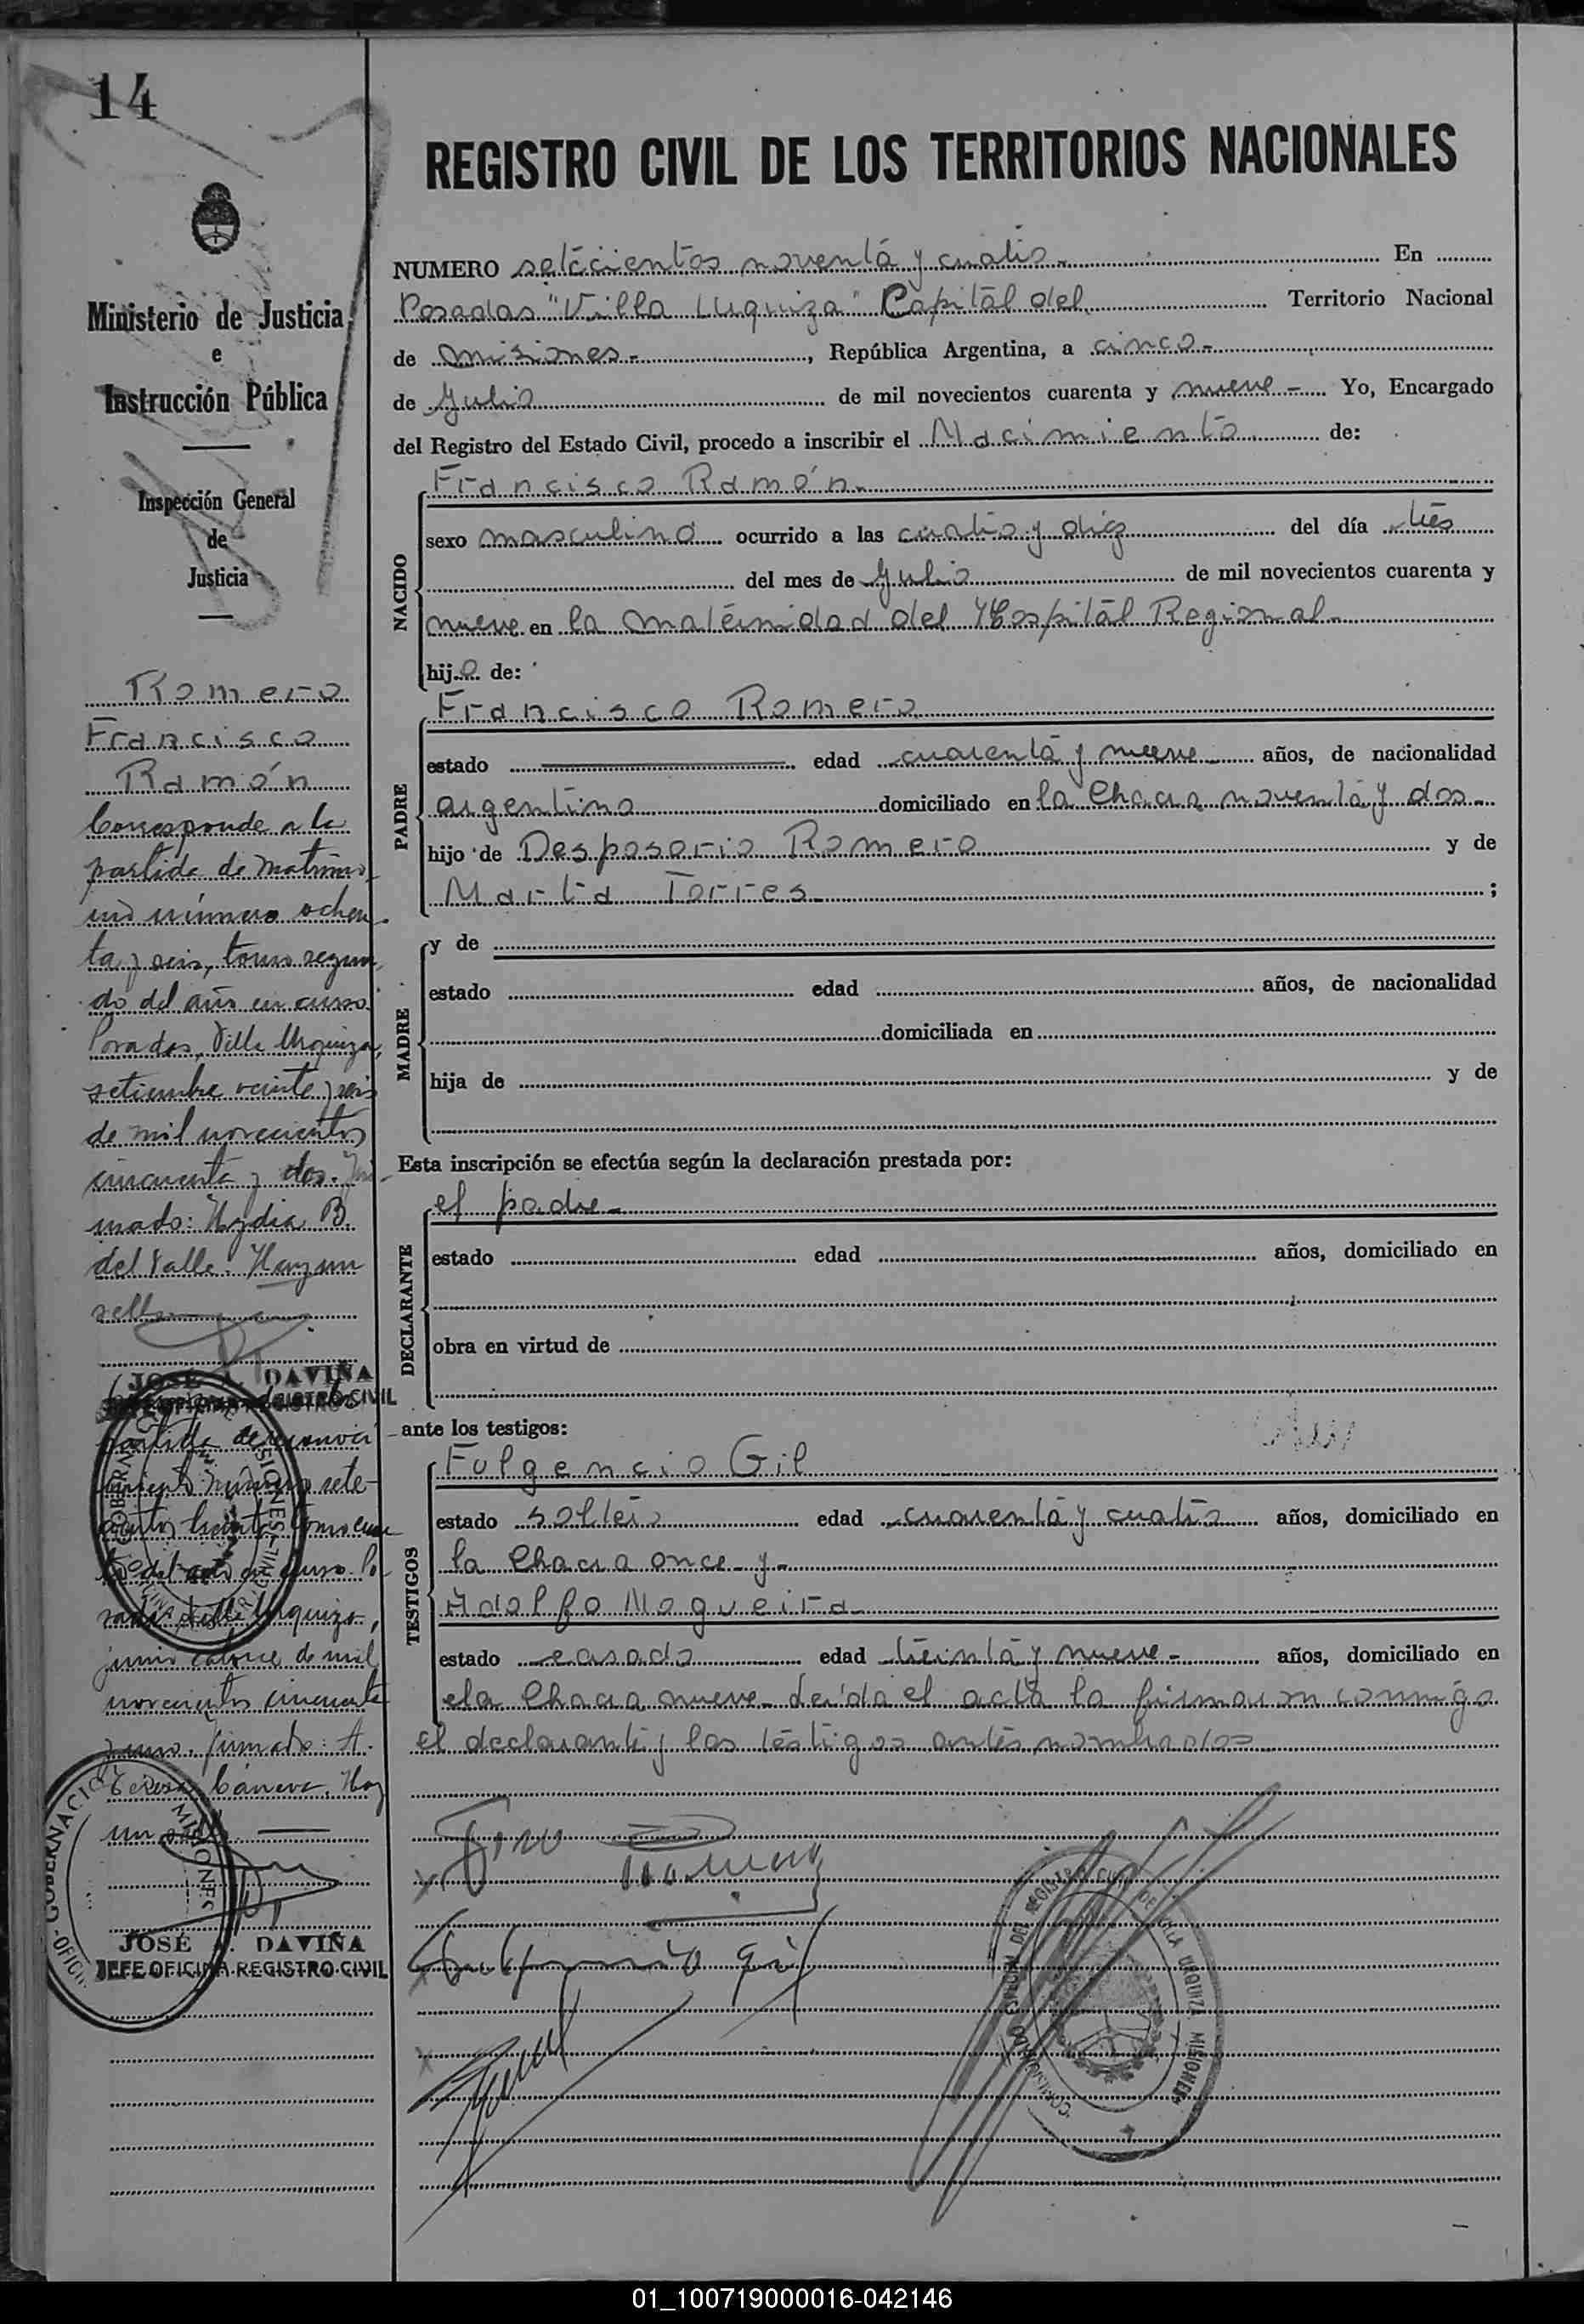 14
Ministerio de Justicia
e
Instrucción Pública
Inspección General
de
Justicia
Romero
Francisco
Ramón
Corresponde a la
partida de matrimo-
nio número ochen-
ta y seis, tomo segun-
do del año en curso.
Posadas, Villa Urquiza,
setiembre veinte y seis
de mil novecientos
cincuenta y dos. Fir-
mado: Hydia B.
del Valle. Hay un
sello
JOSÉ A. DAVIÑA
JEFE OFICINA REGISTRO CIVIL
partida de reconoci
miento número sete-
cientos treinta tomo cuar
to del año en curso. Po
sadas Villa Urquiza,
junio catorce de mil
novecientos cincuenta
y uno. firmado: A.
Teresa Cáneva. Hay
un sello.
JOSÉ A. DAVIÑA
JEFE OFICINA REGISTRO CIVIL
REGISTRO CIVIL DE LOS TERRITORIOS NACIONALES
NUMERO setecientos noventa y cuatro. En
Posadas "Villa Urquiza" Capital del Territorio Nacional
de Misiones, República Argentina, a cinco
de Julio de mil novecientos cuarenta y nueve Yo, Encargado
del Registro del Estado Civil, procedo a inscribir el Nacimiento de:
NACIDO
Francisco Ramón
sexo masculino ocurrido a las cuatro y diez del día tres
del mes de Julio de mil novecientos cuarenta y
nueve en la maternidad del Hospital Regional
hijo de:
PADRE
Francisco Romero
estado edad cuarenta y nueve años, de nacionalidad
argentino domiciliado en la Chacra noventa y dos
hijo de Desposorio Romero y de
Marta Torres ;
MADRE
y de
estado edad años, de nacionalidad
domiciliada en
hija de y de
Esta inscripción se efectúa según la declaración prestada por:
DECLARANTE
el padre
estado edad años, domiciliado en
obra en virtud de
ante los testigos:
TESTIGOS
Fulgencio Gil
estado soltero edad cuarenta y cuatro años, domiciliado en
la Chacra once y
Adolfo Nogueira
estado casado edad treinta y nueve años, domiciliado en
la Chacra nueve leída el acta la firmaron conmigo
el declarante y los testigos antes nombrados
01_100719000016-042146